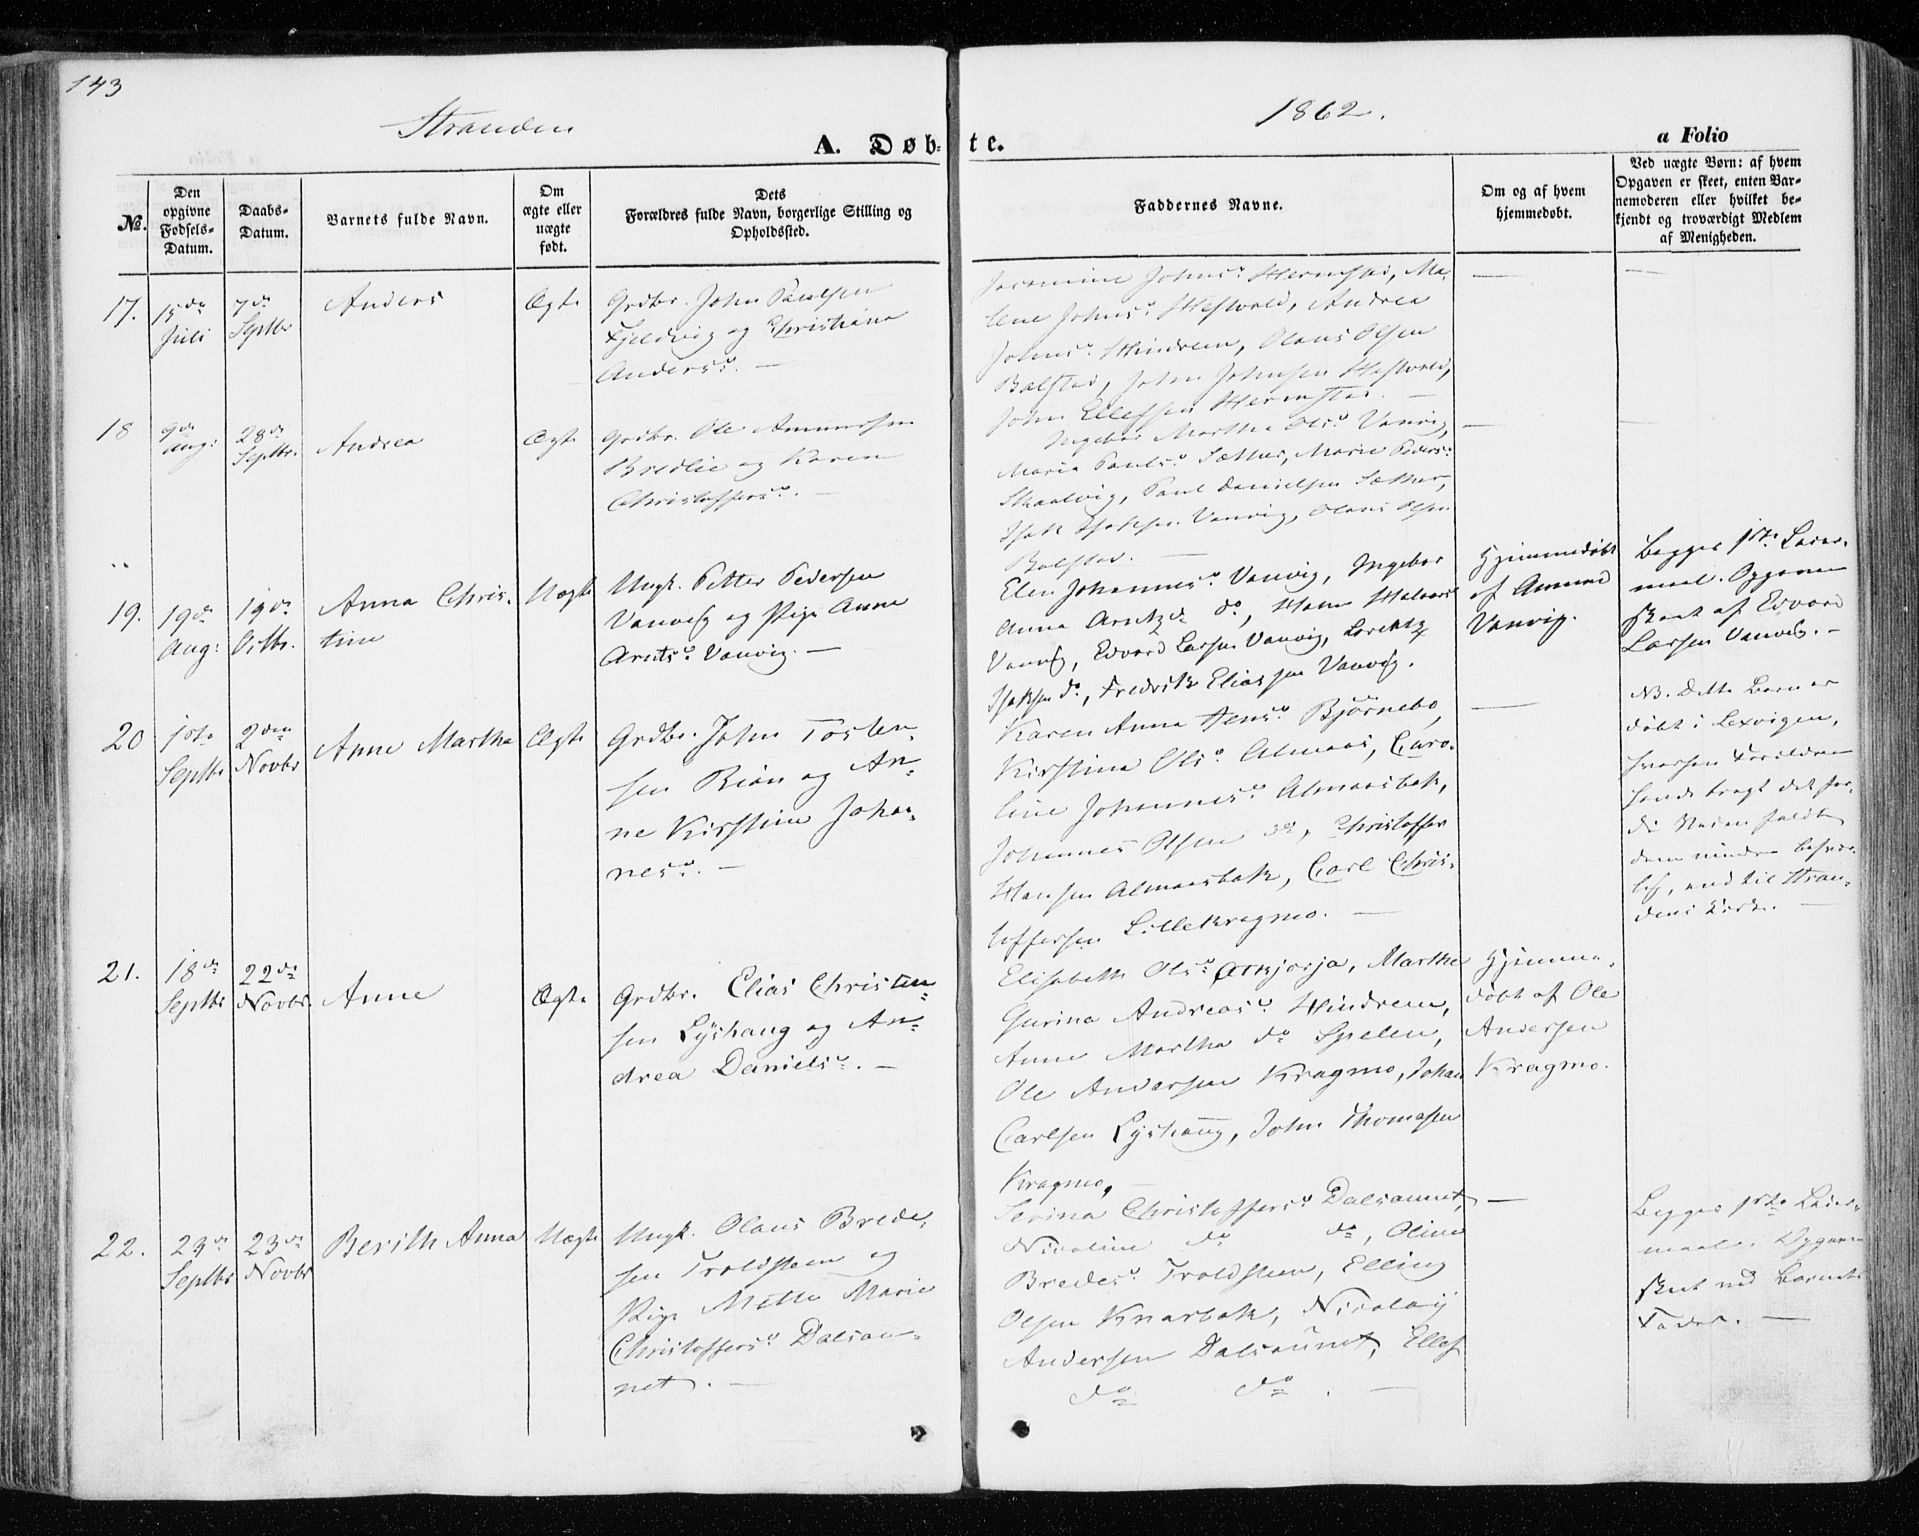 143
Stranden
1862.
A. Døbte.
a Folio
No.
Den opgivne Fødsels-Datum.
Daabs-Datum.
Barnets fulde Navn.
Om ægte eller uægte født.
Dets Forældres fulde Navn, borgerlige Stilling og Opholdssted.
Faddernes Navne.
Om og af hvem hjemmedøbt.
Ved uægte Børn: af hvem Opgaven er skeet, enten Barnemoderen eller hvilket bekjendt og troværdigt Medlem af Menigheden.
17.
15de Juli
7de Septbr
Anders
Ægte
Grdbr. John Paulsen
Fjeldvig og Christiana
Andersd. —
Johnsd. Hermstad, Ma-
lene Johnsd. Hestvold, Andrea
Johnsd. Hindrem, Olaus Olsen
Balstad, John Johnsen Hestvold,
John Ellefsen Hermstad. —
—
—
18
9de Aug:
28de Septbr.
Andrea
Ægte
Grdbr. Ole Amundsen
Bredlie og Karen
Christoffersd. —
Ingebor Martha Olsd. Vanvig,
Maria Paulsd. Sæther, Marie Pedersd.
Skaalvig, Paul Danielsen Sæther,
Isak Isaksen Vanvig, Olaus Olsen
Balstad. —
—
—
19.
19de Aug:
19de Octbr.
Anna Chris-
tine
Uægte
Ungk. Petter Pedersen
Vanvig og Pige Anne
Arntsd. Vanvig. —
Elen Johannesd. Vanvig, Ingebor
Anna Arntzd. do,
Vanvig, Edvard Larsen Vanvig,
Isaksen do, Fredrik Eliassen Vanvig.
Hjemmedøbt
af Amund
Vanvig.
Begges 1ste Leier-
maal. Opgaven
skeet af Edvard
Larsen Vanvig. —
20
1ste Septbr
2den Novbr
Anne Martha
Ægte
Grdbr. John Tosten-
sen Rian og An-
ne Kirstine Johan-
nesd. —
Karen Anna Jensd. Bjørnebo,
Kirstina Olsd. Almaas, Caro-
line Johannesd. Almaasbak,
Johannes Olsen do, Christoffer
Hansen Almaasbak, Carl Chris-
toffersen Lillekragmo. —
—
NB. Dette Barn er
døbt i Lexvigen,
hvorhen Forældrene
havde bragt det for-
di Veien faldt
dem mindre besvær-
lig, end til Stran-
dens Kirke. —
21.
18de Septbr
22de Novbr.
Anne
Ægte
Grdbr. Elias Christen-
sen Lyshaug og An-
drea Danielsd. —
Elisabeth Olsd. Askjosja, Martha
Gurina Andreasd. Hindrem,
Anne Martha do Spelen,
Ole Andersen Kragmo, Johan
Carlsen Lyshaug, John Thomasen
Kragmo. —
Hjemme-
døbt af Ole
Andersen
Kragmo.
22.
23de Septbr
23de Novbr
Berith Anna
Uægte
Ungk. Olaus Brede-
sen Troldsteen og
Pige Mette Marie
Christoffersd. Dalsau-
net. —
Serina Christoffersd. Dalsaunet,
Nicoline do do, Oline
Bredesd. Troldsteen, Elling
Olsen Knarbak, Nicolay
Andersen Dalsaunet, Ellef
do do. —
—
Begges 1ste Leier-
maal. Opgaven
skeet ved Barnets
Fader. —